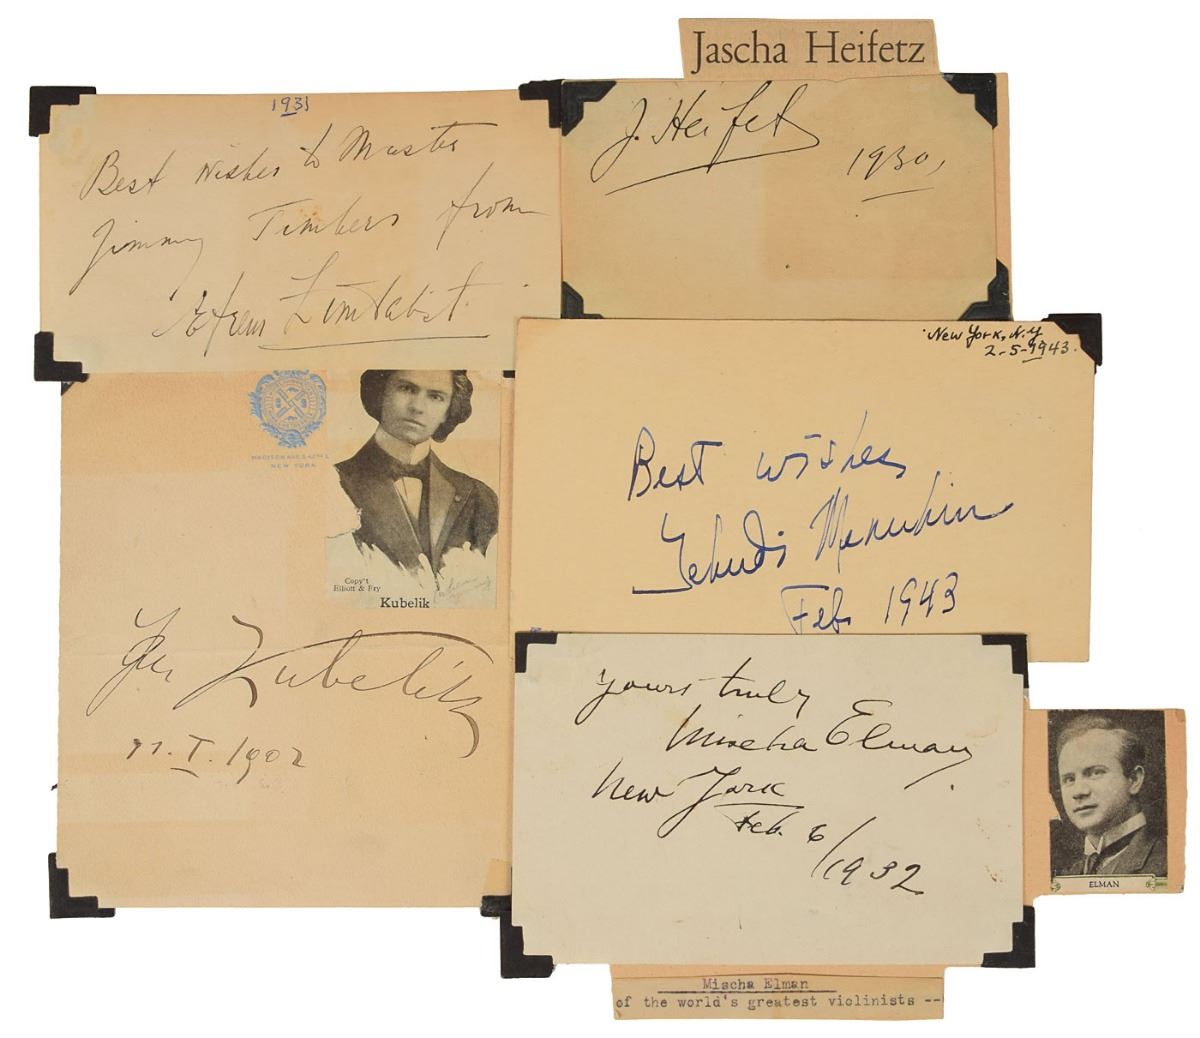 Jascha Heifetz
1931
Best wishes to Master
Jimmy Timbers from
Efrem Zimbalist.
J. Heifetz
1930,
New York, N.Y
2-5-1943.
Best wishes
Yehudi Menuhin
Feb. 1943
MADISON AVE & 42ND ST.
NEW YORK
Copy't
Elliott & Fry
Kubelik
Jan Kubelik
I. 1902
Yours truly
Mischa Elman
New York
Feb. 6/1932
ELMAN
Mischa Elman
of the world's greatest violinists --